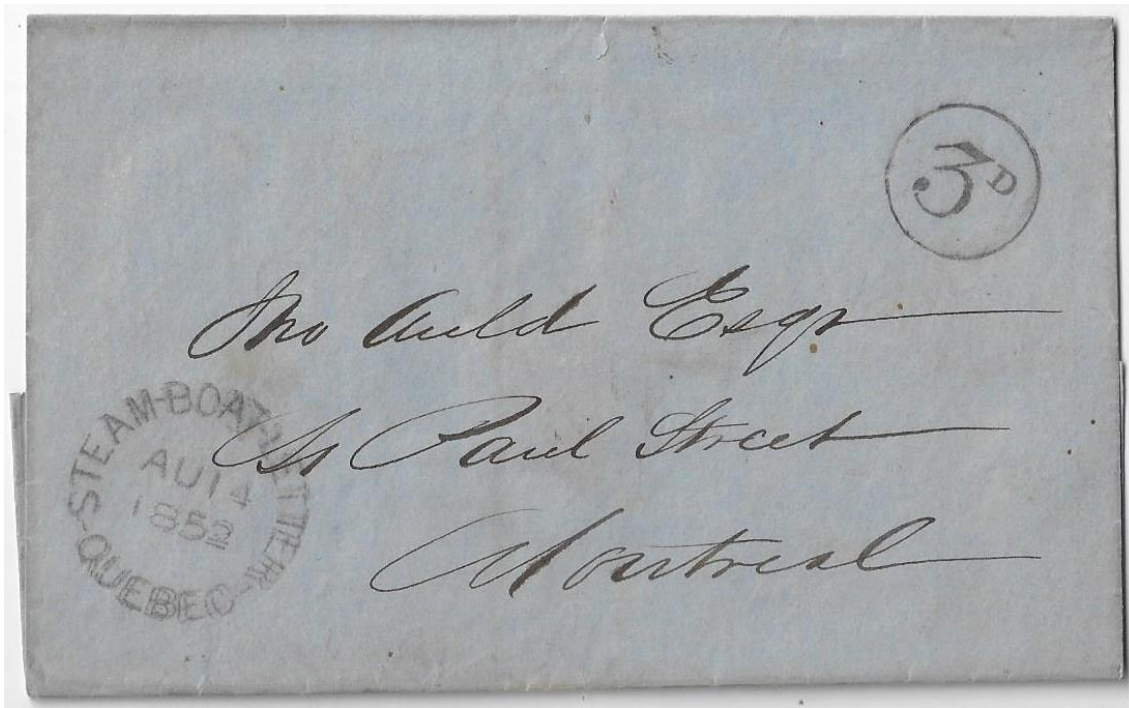 3D
Jno Auld Esqr
St Paul Street
Montreal
STEAM-BOAT LETTER
AU 14
1852
QUEBEC